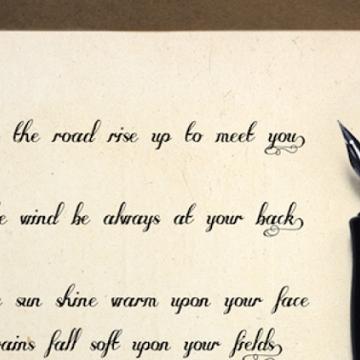 the road rise up to meet you
wind be always at your back
sun shine warm upon your face
fall soft upon your fields